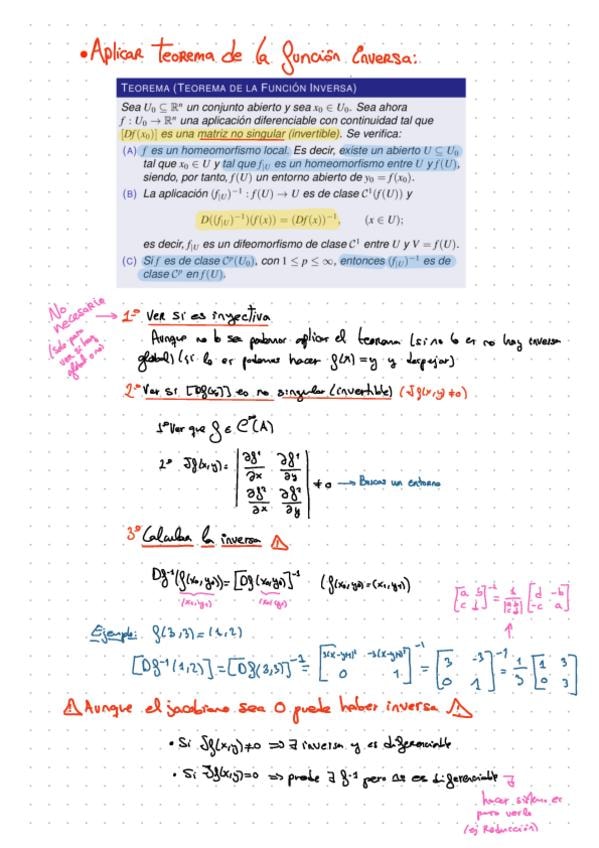 • Aplicar teorema de la función inversa:
TEOREMA (TEOREMA DE LA FUNCIÓN INVERSA)
Sea U₀ ⊆ ℝⁿ un conjunto abierto y sea x₀ ∈ U₀. Sea ahora
f : U₀ → ℝⁿ una aplicación diferenciable con continuidad tal que
[Df(x₀)] es una matriz no singular (invertible). Se verifica:
(A) f es un homeomorfismo local. Es decir, existe un abierto U ⊆ U₀
tal que x₀ ∈ U y tal que f|U es un homeomorfismo entre U y f(U),
siendo, por tanto, f(U) un entorno abierto de y₀ = f(x₀).
(B) La aplicación (f|U)⁻¹ : f(U) → U es de clase C¹(f(U)) y
D((f|U)⁻¹)(f(x)) = (Df(x))⁻¹, (x ∈ U);
es decir, f|U es un difeomorfismo de clase C¹ entre U y V = f(U).
(C) Si f es de clase Cᵖ(U₀), con 1 ≤ p ≤ ∞, entonces (f|U)⁻¹ es de
clase Cᵖ en f(U).
No necesario
(solo para
ver si hay
global o no)
→ 1º Ver si es inyectiva
Aunque no lo sea podemos aplicar el teorema (si no lo es no hay inversa
global) (si lo es podemos hacer f(x) = y y despejar)
2º Ver si [Df(x₀)] es no singular (invertible) (Jf(x,y) ≠ 0)
1º Ver que f ∈ C^∞(A)
2º Jf(x,y) = | ∂f¹/∂x ∂f¹/∂y | ≠ 0 → Buscas un entorno
| ∂f²/∂x ∂f²/∂y |
3º Calcular la inversa ⚠
Df⁻¹(f(x₀,y₀)) = [Df(x₀,y₀)]⁻¹ (f(x₀,y₀) = (x₁,y₁))
(x₁,y₁) (x₀,y₀)
[a b; c d]⁻¹ = 1/|a b; c d| [d -b; -c a]
Ejemplo: f(3,3) = (1,2)
[Df⁻¹(1,2)] = [Df(3,3)]⁻¹ = [3(x-y+1)² -3(x-y+1)²; 0 1]⁻¹ = [3 -3; 0 1]⁻¹ = 1/3 [1 3; 0 3]
⚠ Aunque el jacobiano sea 0 puede haber inversa ⚠
• Si Jf(x,y) ≠ 0 ⟹ ∃ inversa y es diferenciable
• Si Jf(x,y) = 0 ⟹ puede ∃ f⁻¹ pero no es diferenciable
hacer sistema ec
para verlo
(ej Reducción)